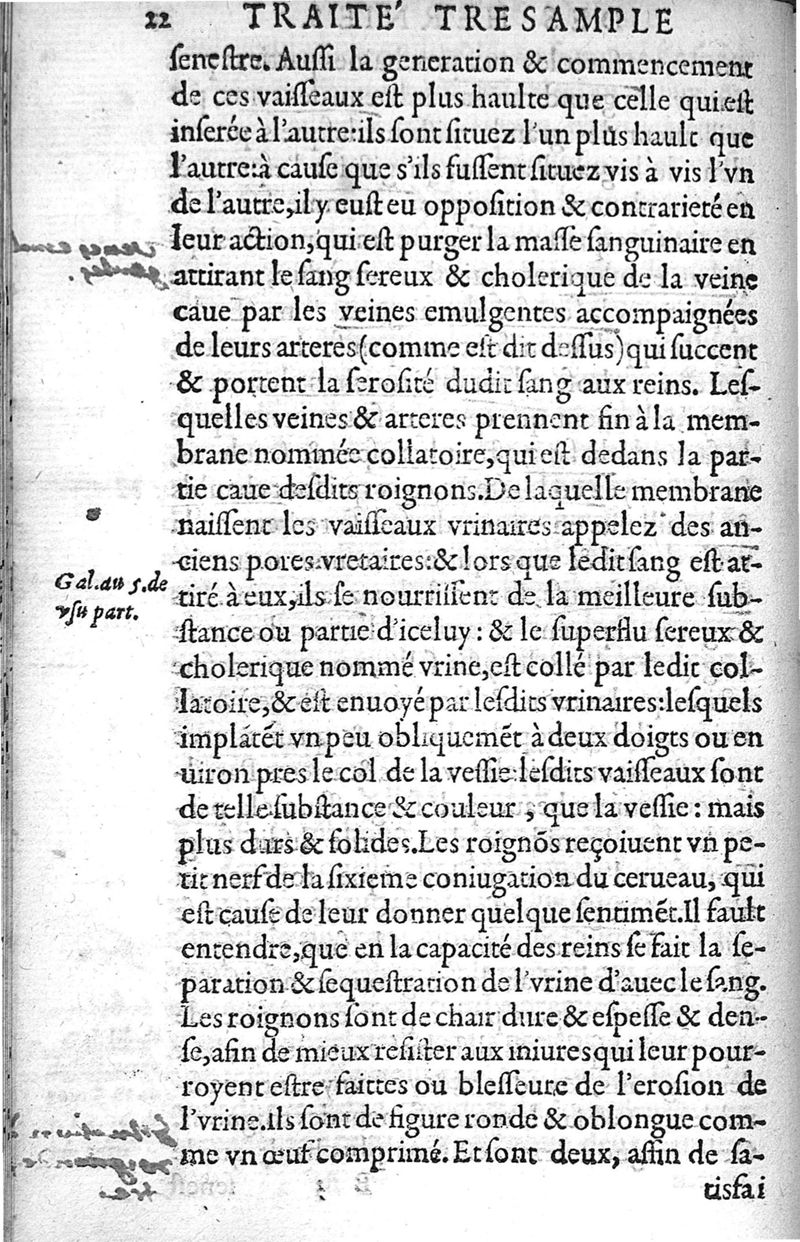 22 TRAITE' TRESAMPLE
ſeneſtre. Auſſi la generation & commencement
de ces vaiſſeaux eſt plus haulte que celle qui eſt
inſerée à l'autre: ils ſont ſituez l'un plus hault que
l'autre: à cauſe que s'ils fuſſent ſituez vis à vis l'vn
de l'autre, il y euſt eu oppoſition & contrarieté en
leur action, qui eſt purger la maſſe ſanguinaire en
attirant le ſang ſereux & cholerique de la veine
caue par les veines emulgentes accompaignées
de leurs arteres (comme eſt dit deſſus) qui ſuccent
& portent la ſeroſité dudit ſang aux reins. Leſ-
quelles veines & arteres prennent fin à la mem-
brane nommée collatoire, qui eſt dedans la par-
tie caue deſdits roignons. De laquelle membrane
naiſſent les vaiſſeaux vrinaires appelez des an-
ciens pores vretaires: & lors que ledit ſang eſt at-
Gal. au 5. de
vſu part.
tiré à eux, ils ſe nourriſſent de la meilleure ſub-
ſtance ou partie d'iceluy: & le ſuperflu ſereux &
cholerique nommé vrine, eſt collé par ledit col-
latoire, & eſt enuoyé par leſdits vrinaires: leſquels
implãtẽt vn peu obliquemẽt à deux doigts ou en
uiron pres le col de la veſſie: leſdits vaiſſeaux ſont
de telle ſubſtance & couleur, que la veſſie: mais
plus durs & ſolides. Les roignõs reçoiuent vn pe-
tit nerf de la ſixieme coniugation du cerueau, qui
eſt cauſe de leur donner quelque ſentimẽt. Il fault
entendre, que en la capacité des reins ſe fait la ſe-
paration & ſequeſtration de l'vrine d'auec le ſang.
Les roignons ſont de chair dure & eſpeſſe & den-
ſe, afin de mieux reſiſter aux iniures qui leur pour-
royent eſtre faittes ou bleſſeure de l'eroſion de
l'vrine. ils ſont de figure ronde & oblongue com-
me vn œuf comprimé. Et ſont deux, affin de ſa-
tisfai